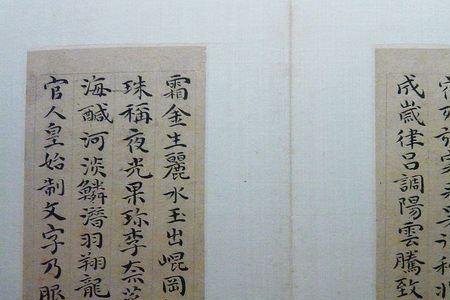 成歲律呂調陽雲騰致
霜金生麗水玉出崐岡
珠稱夜光果珍李柰菜
海醎河淡鱗潛羽翔龍
官人皇始制文字乃服